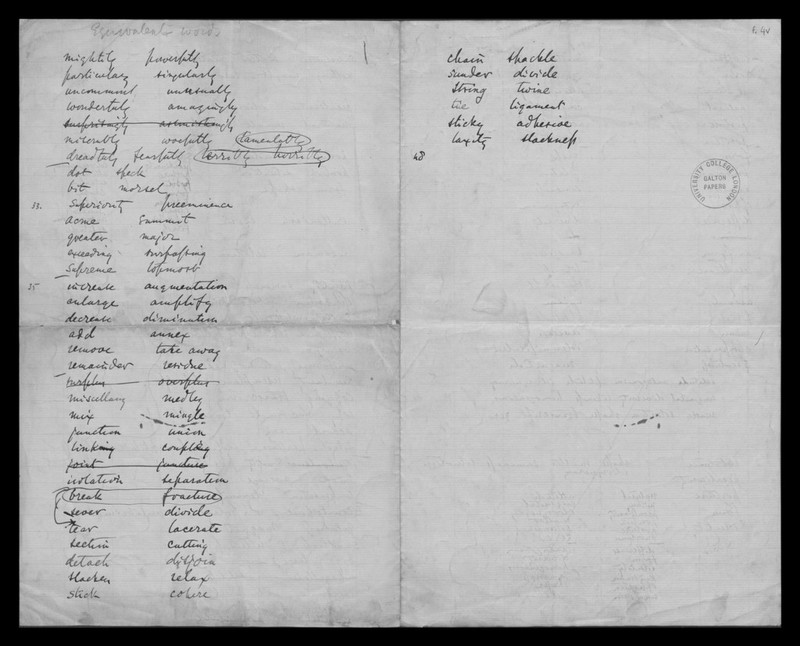 Equivalent words
mightily powerfully
particularly singularly
uncommonly unusually
wonderfully amazingly
surprisingly astonishingly
miserably woefully lamentably
dreadfully fearfully terribly horribly
dot speck
bit morsel
33. Superiority preeminence
acme summit
greater major
exceeding surpassing
supreme topmost
35 increase augmentation
enlarge amplify
decrease diminution
add annex
remove take away
remainder residue
surplus overplus
miscellany medley
mix mingle
junction union
linking coupling
joint juncture
isolation separation
break fracture
sever divide
tear lacerate
section cutting
detach disjoin
slacken relax
stick cohere
chain shackle
sunder divide
string twine
tie ligament
sticky adhesive
laxity slackness
48
UNIVERSITY COLLEGE LONDON
GALTON
PAPERS